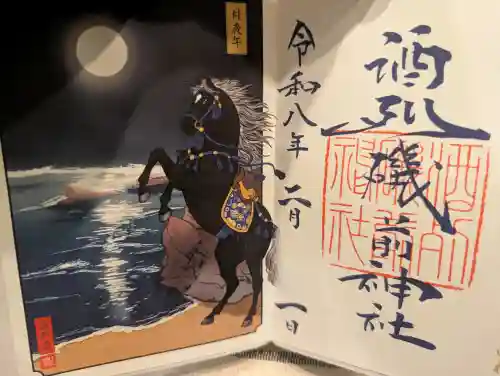 酒列磯前神社
酒列
磯前
神社
令和八年 二月 一日